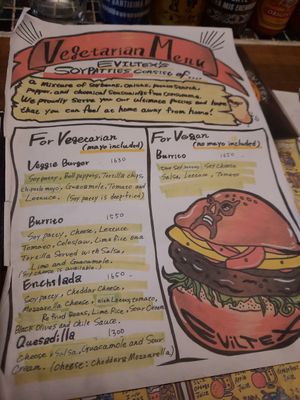 Vegetarian Menu
EVILTEX'S
SOYPATTIES CONSISTS OF....
a mixture of Soybeans, Onions,
pepper, and
We proudly serve you our ultimate patties and hope
that you can feel at home away from home!
For Vegetarian
(mayo included)
For Vegan
(no mayo included)
Veggie Burger 1650
Soy patty, Bell peppers, Tortilla chips,
Chipotle mayo, Guacamole, Tomato and
Lettuce. (Soy patty is deep-fried)
Burrito
Soy patty, Soy Cheese
Salsa, Lettuce, Tomato
Burrito 1550
Soy patty, Cheese, Lettuce
Tomato, Coleslaw, Lime rice on a
Tortilla Served with Salsa,
Lime and Guacamole.
(Soy cheese is available)
Enchilada 1650
Soy patty, Cheddar Cheese,
Mozzarella Cheese, tomato,
Refried Beans, Lime Rice, Sour Cream
Black Olives and Chile Sauce.
Quesadilla 1300
Cheese & Salsa, Guacamole and Sour
Cream. (Cheese: Cheddar & Mozzarella)
EVILTEX